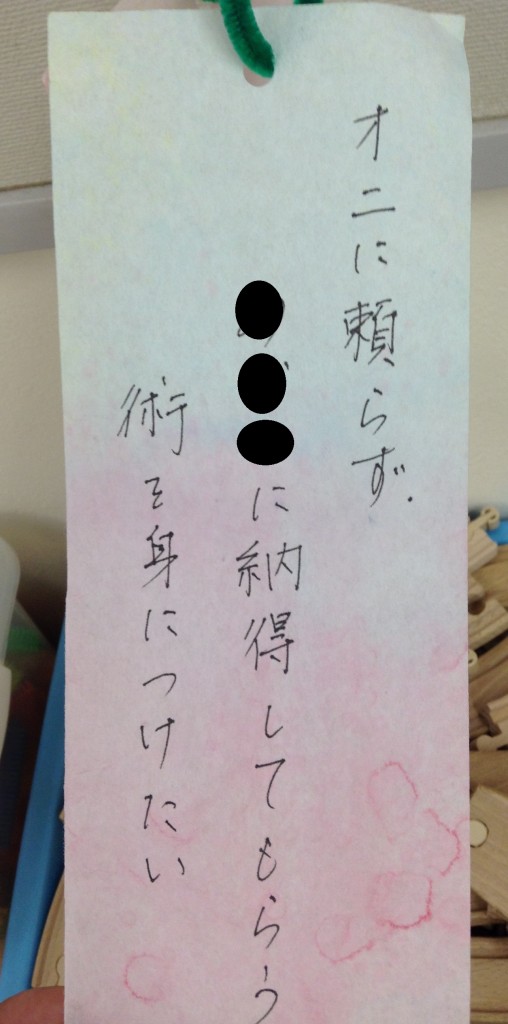 オニに頼らず、
に納得してもらう
術を身につけたい